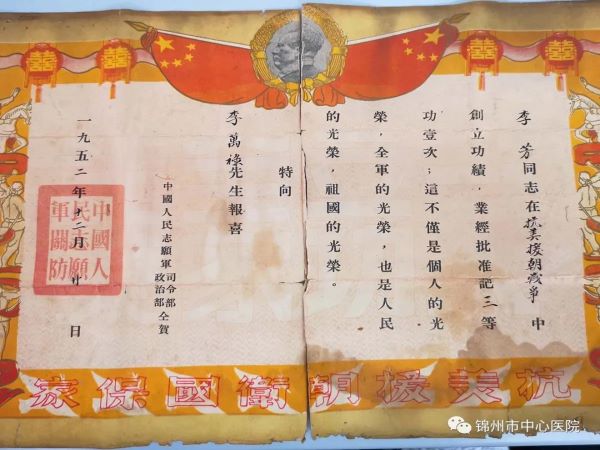 李芳同志在抗美援朝战爭中
創立功績，業經批准記三等
功壹次；這不僅是個人的光
榮，全軍的光榮，也是人民
的光榮，祖國的光榮。
特向
李萬祿先生報喜
中國人民志願軍司令部政治部仝賀
一九五二年十二月廿日
中國人
民志願
軍關防
抗美援朝衛國保家
锦州市中心医院